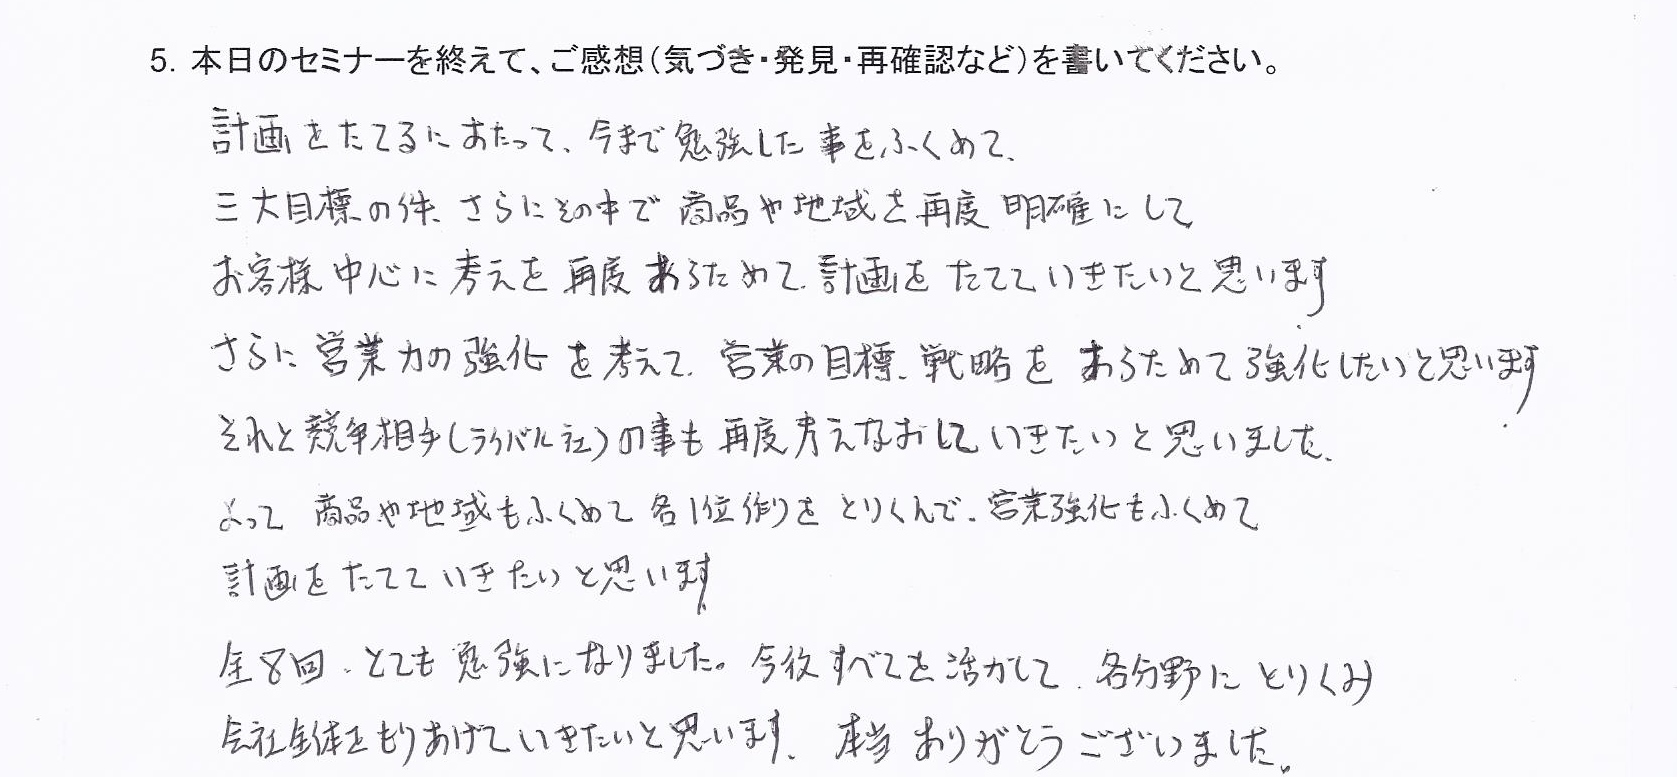 5. 本日のセミナーを終えて、ご感想(気づき・発見・再確認など)を書いてください。
計画をたてるにあたって、今まで勉強した事をふくめて、
三大目標の件、さらにその中で商品や地域を再度明確にして
お客様中心に考えを再度あらためて、計画をたてていきたいと思います
さらに営業力の強化を考えて、営業の目標、戦略をあらためて強化したいと思います
それと競争相手(ライバル社)の事も再度考えなおしていきたいと思いました、
よって商品や地域もふくめて各1位作りをとりくんで、営業強化もふくめて
計画をたてていきたいと思います
全8回、とても勉強になりました。今後すべてを活かして、各分野にとりくみ
会社全体をもりあげていきたいと思います、本当ありがとうございました。